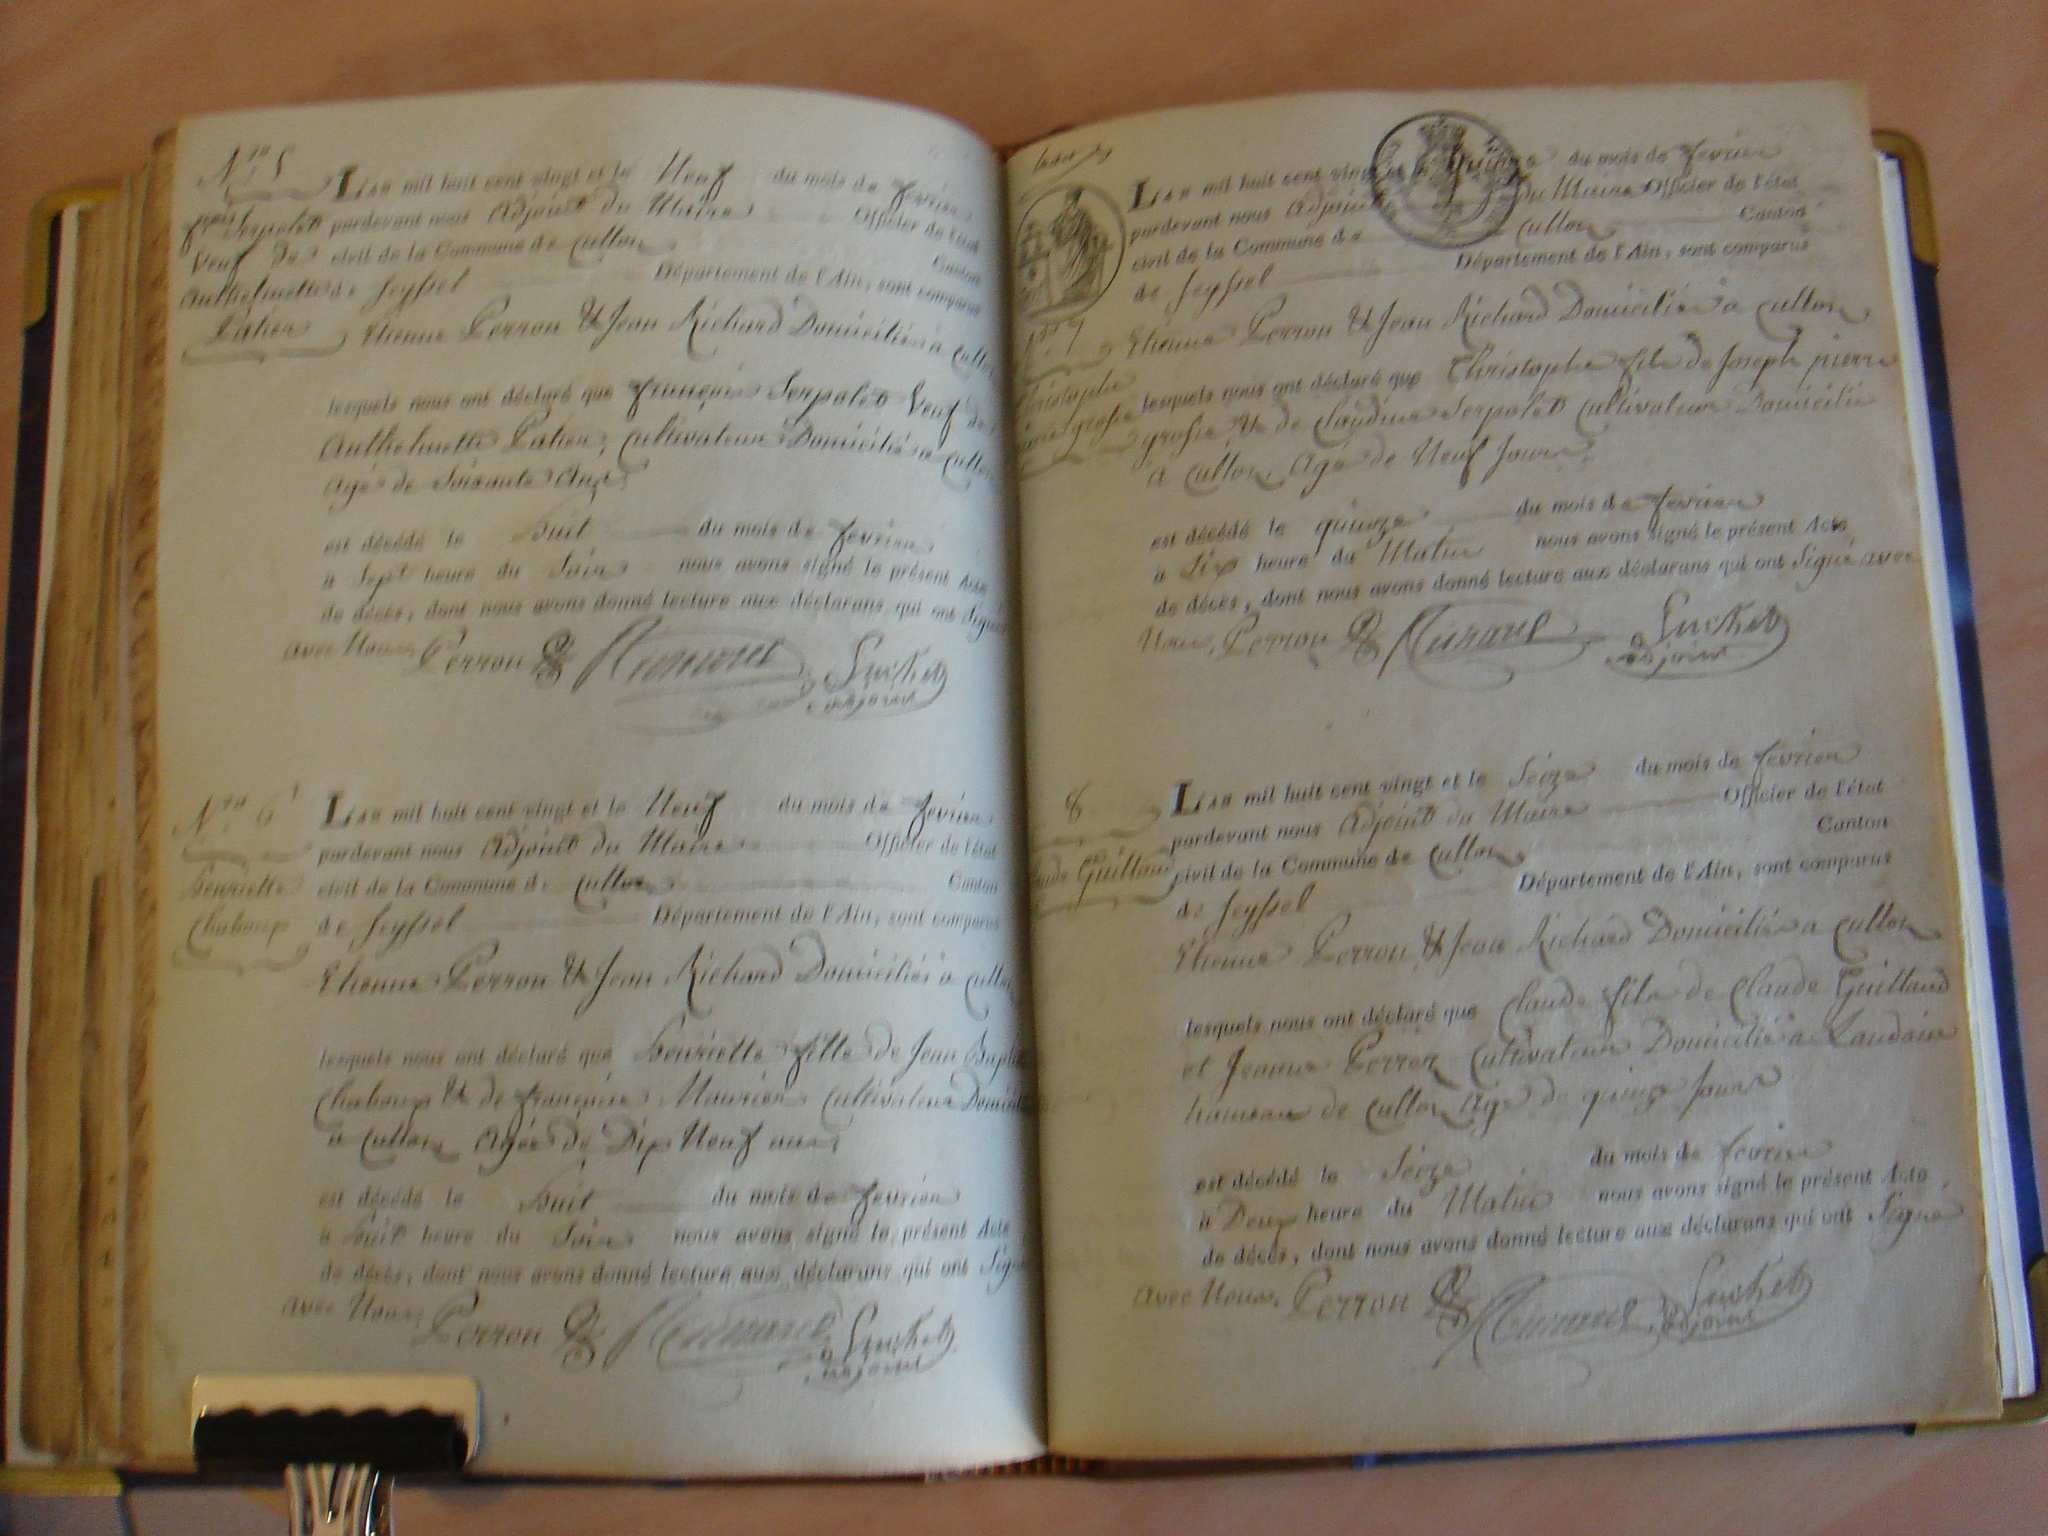 N.ro 5
L'an mil huit cent vingt et le Neuf du mois de fevrier
fçois Serpolet
pardevant nous Adjoint du Maire Officier de l'état
Veuf de
civil de la Commune de Culloz Canton
Anthelmette
de Seyssel Département de l'Ain, sont comparus
Etienne Perron & Jean Richard Domiciliés à Culloz
lesquels nous ont déclaré que françois Serpolet Veuf de
Anthelmette Cultivateur Domicilié à Culloz
Agé de Soixante Ans,
est décédé le huit du mois de fevrier
à Sept heure du Soir nous avons signé le présent Acte
de décès, dont nous avons donné lecture aux déclarans qui ont Signé
avec Nous, Perron
Suchet
adjoint
N.ro 6
L'an mil huit cent vingt et le Neuf du mois de fevrier
pardevant nous Adjoint du Maire Officier de l'état
henriette
civil de la Commune de Culloz Canton
Chaboup
de Seyssel Département de l'Ain, sont comparus
Etienne Perron & Jean Richard Domiciliés à Culloz
lesquels nous ont déclaré que henriette fille de Jean
Chaboup & de françoise Cultivateur
à Culloz Agée de Dix Neuf ans,
est décédé le huit du mois de fevrier
à huit heure du Soir nous avons signé le présent Acte
de décès, dont nous avons donné lecture aux déclarans qui ont Signé
avec Nous, Perron
Suchet
adjoint
L'an mil huit cent vingt et le Quinze du mois de fevrier
pardevant nous Adjoint du Maire Officier de l'état
civil de la Commune de Culloz Canton
de Seyssel Département de l'Ain, sont comparus
N.ro 7
Etienne Perron & Jean Richard Domiciliés à Culloz
Christophe
lesquels nous ont déclaré que Christophe fils de Joseph pierre
grosse
grosse & de Claudine Serpolet Cultivateur Domicilié
à Culloz, Agé de Neuf Jours,
est décédé le quinze du mois de fevrier
à Six heure du Matin nous avons signé le présent Acte
de décès, dont nous avons donné lecture aux déclarans qui ont Signé avec
Nous, Perron
Suchet
adjoint
8
L'an mil huit cent vingt et le Seize du mois de fevrier
pardevant nous Adjoint du Maire Officier de l'état
Guilland
civil de la Commune de Culloz Canton
de Seyssel Département de l'Ain, sont comparus
Etienne Perron & Jean Richard Domiciliés à Culloz
lesquels nous ont déclaré que Claude fils de Claude Guilland
et Jeanne Perron Cultivateur Domicilié à Landaise
hameau de Culloz Agé de quinze Jours
est décédé le Seize du mois de fevrier
à Deux heure du Matin nous avons signé le présent Acte
de décès, dont nous avons donné lecture aux déclarans qui ont Signé
avec Nous, Perron
Suchet
adjoint